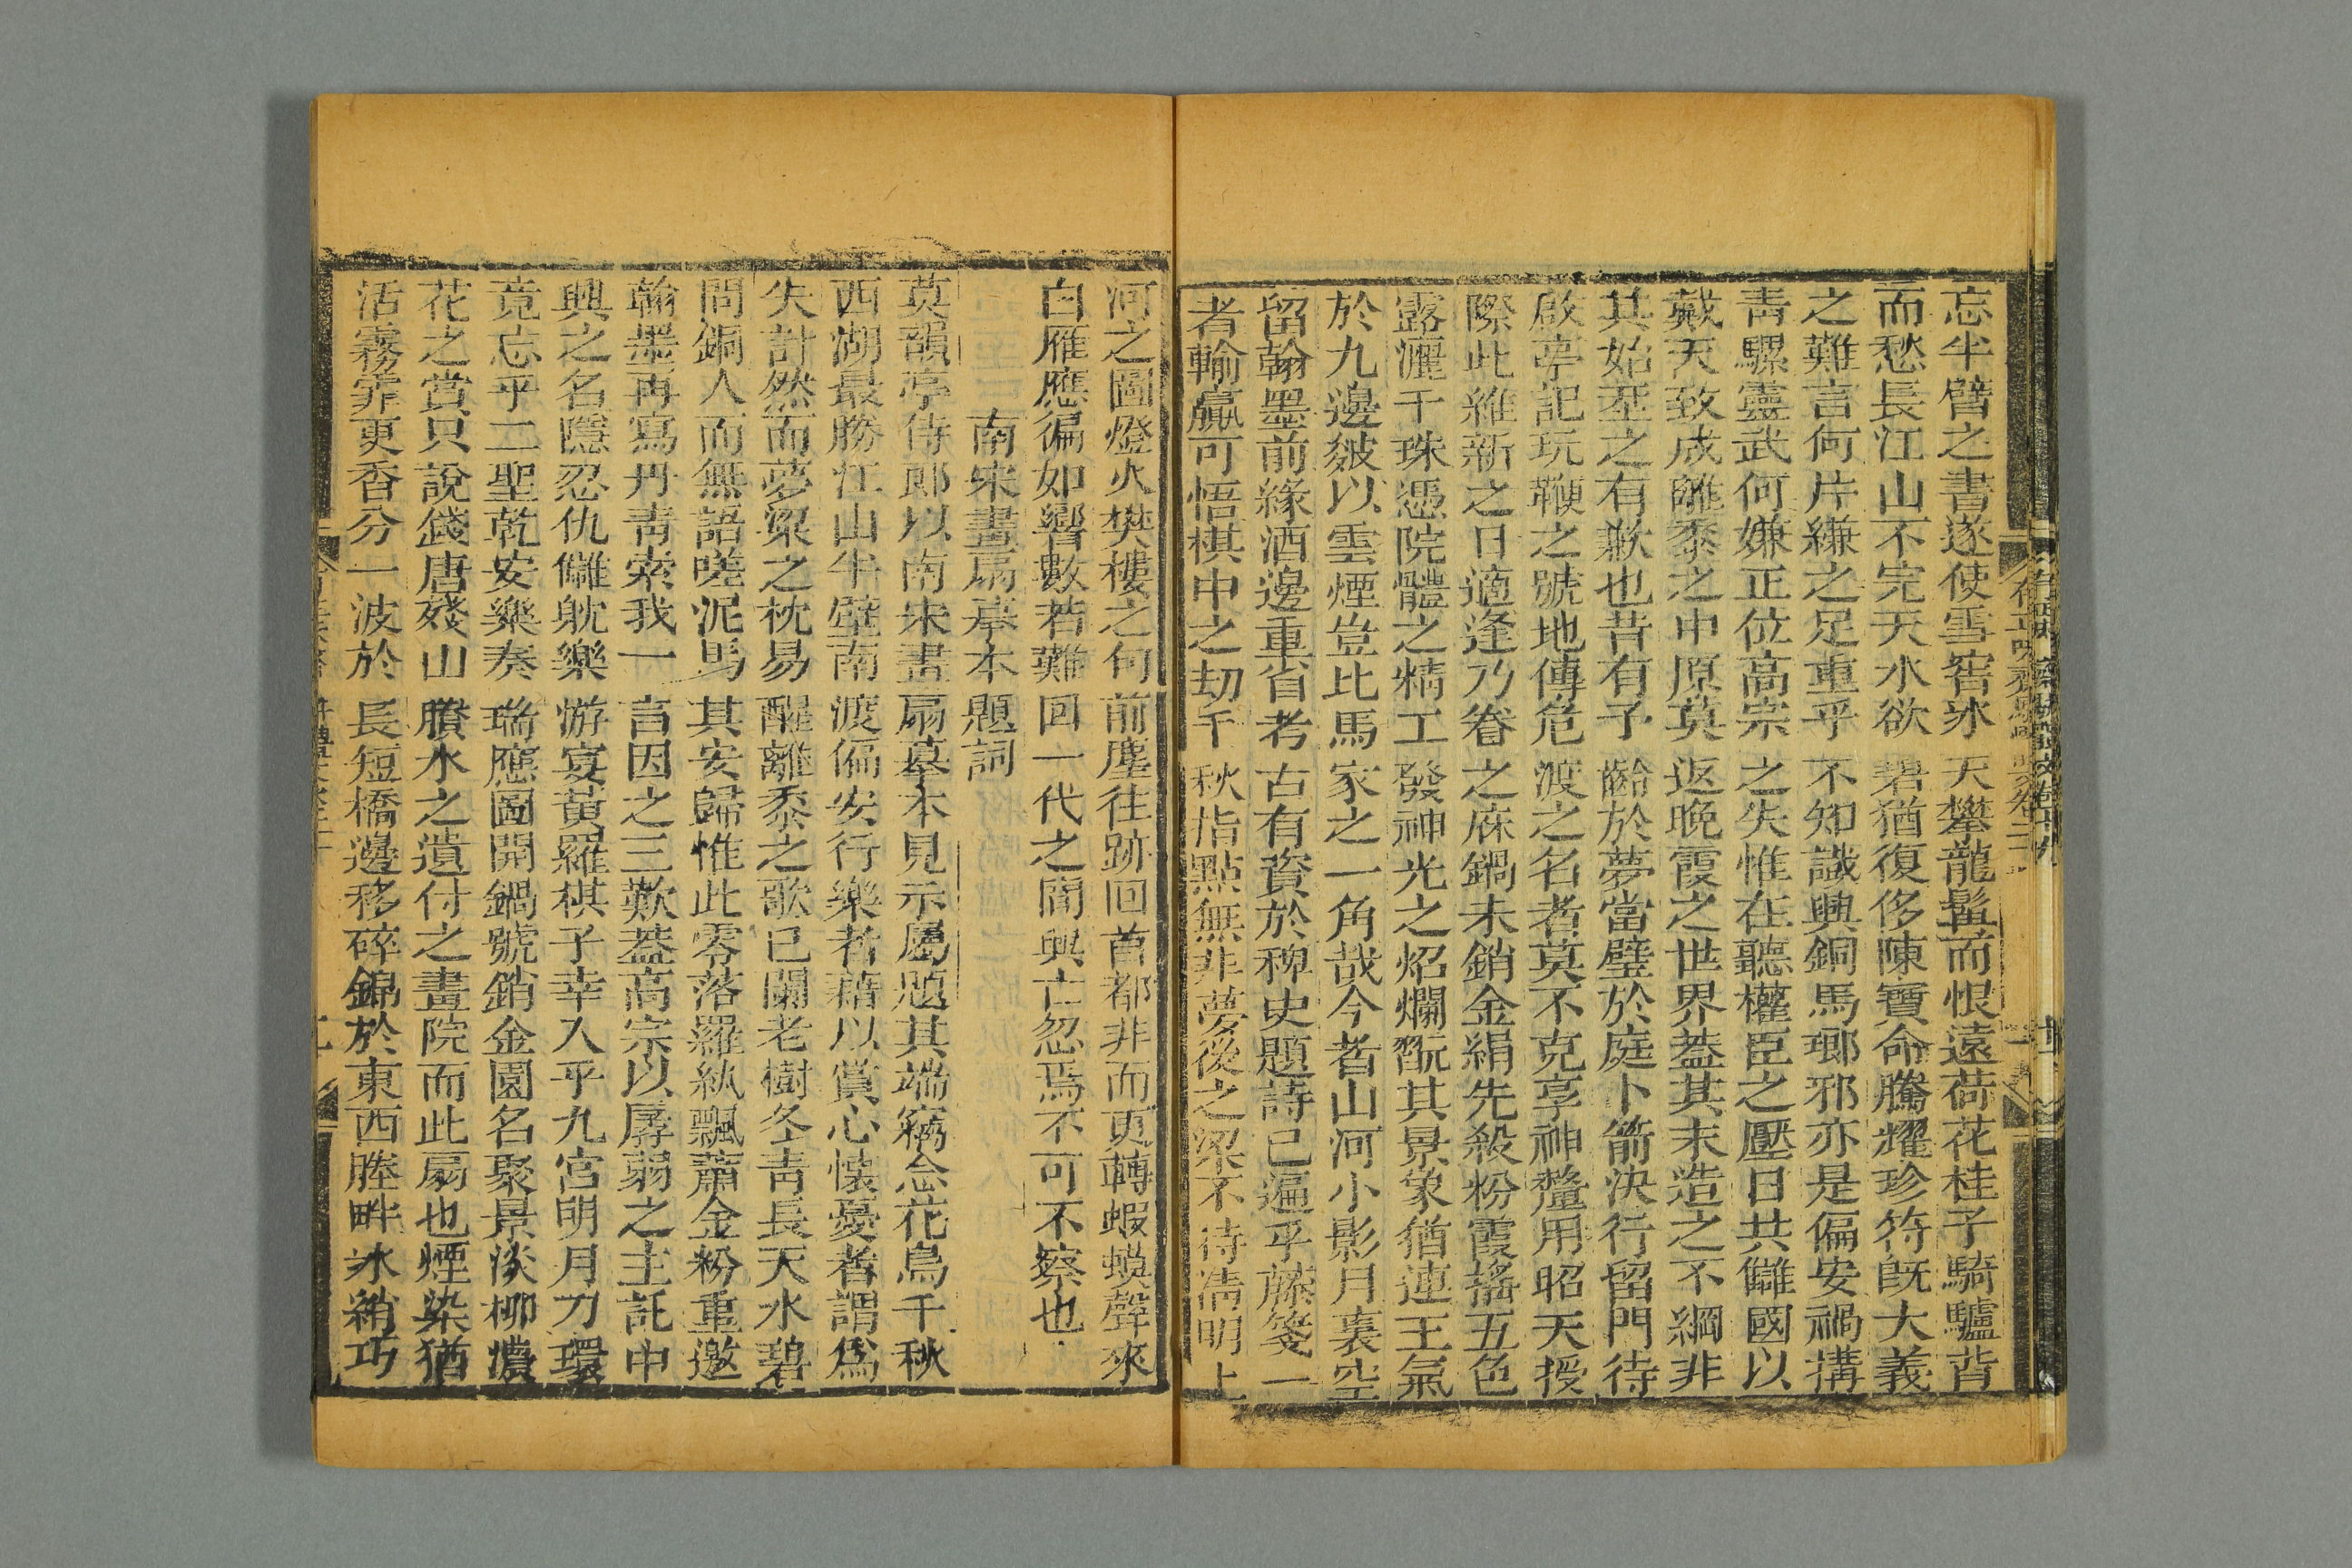 忘半臂之書遂使雪窖冰天攀龍髯而恨遠荷花桂子騎驢背
而愁長江山不完天水欲碧猶復侈陳寶命騰耀珍符旣大義
之難言何片縑之足重乎不知讖興銅馬瑯邪亦是偏安禍搆
靑騾靈武何嫌正位高宗之失惟在聽權臣之壓日共讎國以
戴天致成離黍之中原莫返晚霞之世界葢其末造之不綱非
其始基之有歉也昔有予齡於夢當璧於庭卜箭決行留門待
啟亭記玩鞭之號地傳危渡之名者莫不克享神釐用昭天授
際此維新之日適逢乃眷之庥鍋未銷金絹先殺粉霞搖五色
露灑千珠憑院體之精工發神光之炤爛翫其景象猶連王氣
於九邊皴以雲煙豈比馬家之一角哉今者山河小影月裏空
留翰墨前緣酒邊重省考古有資於稗史題詩已遍乎藤箋一
者輸贏可悟棋中之劫千秋指點無非夢後之梁不待淸明上
河之圖燈火樊樓之句前塵往跡回首都非而更轉蝦蟆聲來
白雁應徧如響數若難回一代之閒興亡忽焉不可不察也
南宋畫扇摹本題詞
莫韻亭侍郎以南宋畫扇摹本見示屬題其端竊念花鳥千秋
西湖最勝江山半壁南渡偏安行樂者藉以賞心懷憂者謂爲
失計然而夢梁之枕易醒離黍之歌已闌老樹冬靑長天水碧
問銅人而無語嗟泥馬其安歸惟此零落羅紈飄蕭金粉重邀
翰墨再寫丹靑索我一言因之三歎葢高宗以孱弱之主託中
興之名隱忍仇讎躭樂游宴黃羅棋子幸入乎九宮明月刀環
竟忘乎二聖乾安樂奏瑞應圖開鍋號銷金園名聚景淡柳濃
花之賞只說錢唐殘山賸水之遺付之畫院而此扇也煙染猶
活霧霏更香分一波於長短橋邊移碎錦於東西塍畔冰綃巧